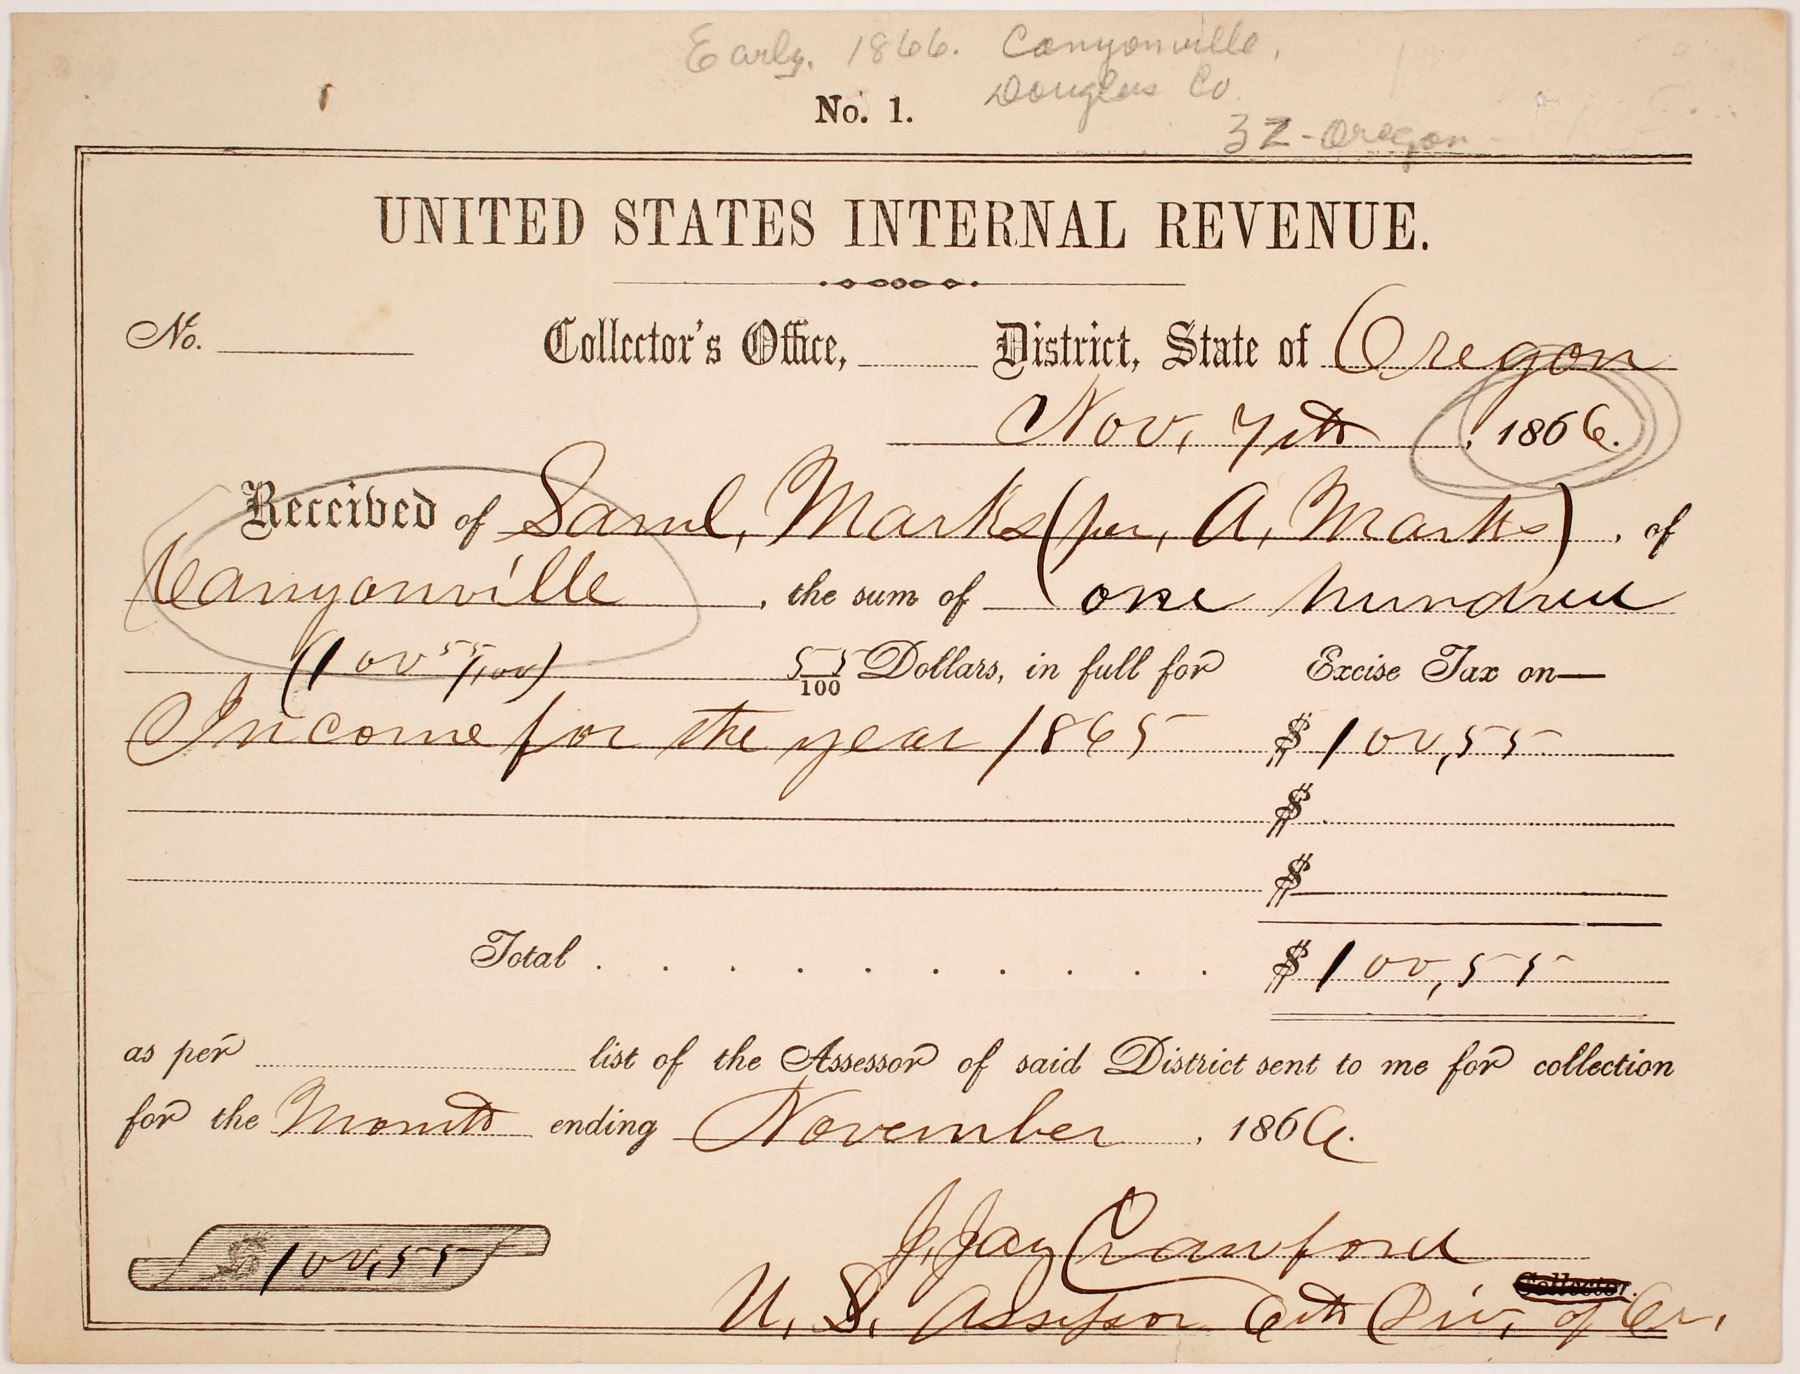 Early. 1866. Canyonville,
Douglas Co.
No. 1.
32-Oregon
UNITED STATES INTERNAL REVENUE.
No. Collector's Office, District, State of Oregon
Nov. 7th, 1866.
Received of Saml, Marks (per, A, Marks), of
Canyonville, the sum of one hundred
(100 55/100) 55/100 Dollars, in full for Excise Tax on—
Income for the year 1865 $ 100,55
$
$
Total . . . . . . . . . . $ 100,55
as per list of the Assessor of said District sent to me for collection
for the Month ending November, 1866.
J. Jay Crawford
Collector.
$100,55
U. S. Assessor 6th Div, of Or,